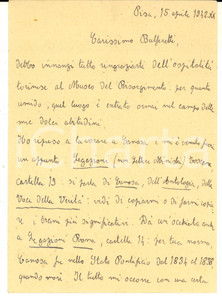 Pisa, 15 aprile 1942 XX
Carissimo
debbo innanzi tutto ringraziarti dell'ospitalità
torinese al Museo del Risorgimento: per quanto
umido, quel luogo è entrato ormai nel campo delle
mie dolci abitudini.
Ho ripreso a lavorare a Canosa e mi è
un appunto: Legazioni (
cartella 13: si parla di Canosa, dell'Antologia, della
Voce della Verità: vedi di copiarmi o di farmi copia-
re i brani più significativi. Dà un'occhiata anche
a Legazioni Roma, cartella 14: per tua norma,
Canosa fu nello Stato Pontificio dal 1834 al 1838
quando morì. Il tutto mi occorre con una certa